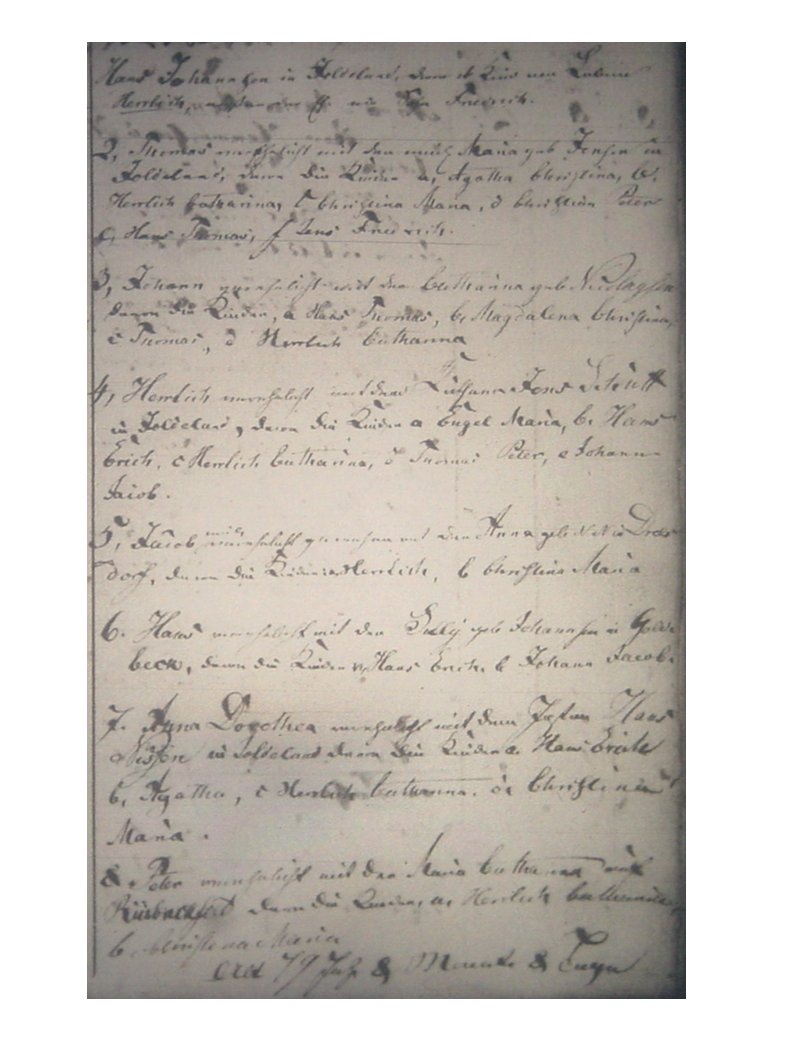 Hans Johannsen in Joldelund, deren Kind
Herrlich, Friedrich.
2, Thomas verehelicht mit der Maria geb Jensen in
Joldelund, deren die Kinder a, Agatha Christina, b,
Herrlich Catharina, c Christina Maria, d Christian Peter
e, Hans Thomas, f Jens Friedrich.
3, Johann verehelicht mit der Catharina geb Nicolaysen
deren die Kinder, a Hans Thomas, b, Magdalena Christina,
c Thomas, d Herrlich Catharina
4, Herrlich verehelicht mit dem Jens Schütt
in Joldelund, deren die Kinder a Engel Maria, b, Hans
Erich, c Herrlich Catharina, d Thomas Peter, e Johann
Jacob.
5, Jacob verehelicht mit der Anna geb N N in Drels
dorf, deren die Kinder a Herrlich, b Christina Maria
6. Hans verehelicht mit der geb Johannsen in Golde
beck, deren die Kinder a, Hans Erich. b Johann Jacob.
7. Anna Dorothea verehelicht mit dem Hans
Nissen in Joldelund deren die Kinder a. Hans Erich
b, Agatha, c Herrlich Catharina. d Christina
Maria.
8. Peter verehelicht mit der Maria Catharina auf
deren die Kinder, a, Herrlich Catharina,
b. Christina Maria
alt 79 Jahr 8 Monate 8 Tage